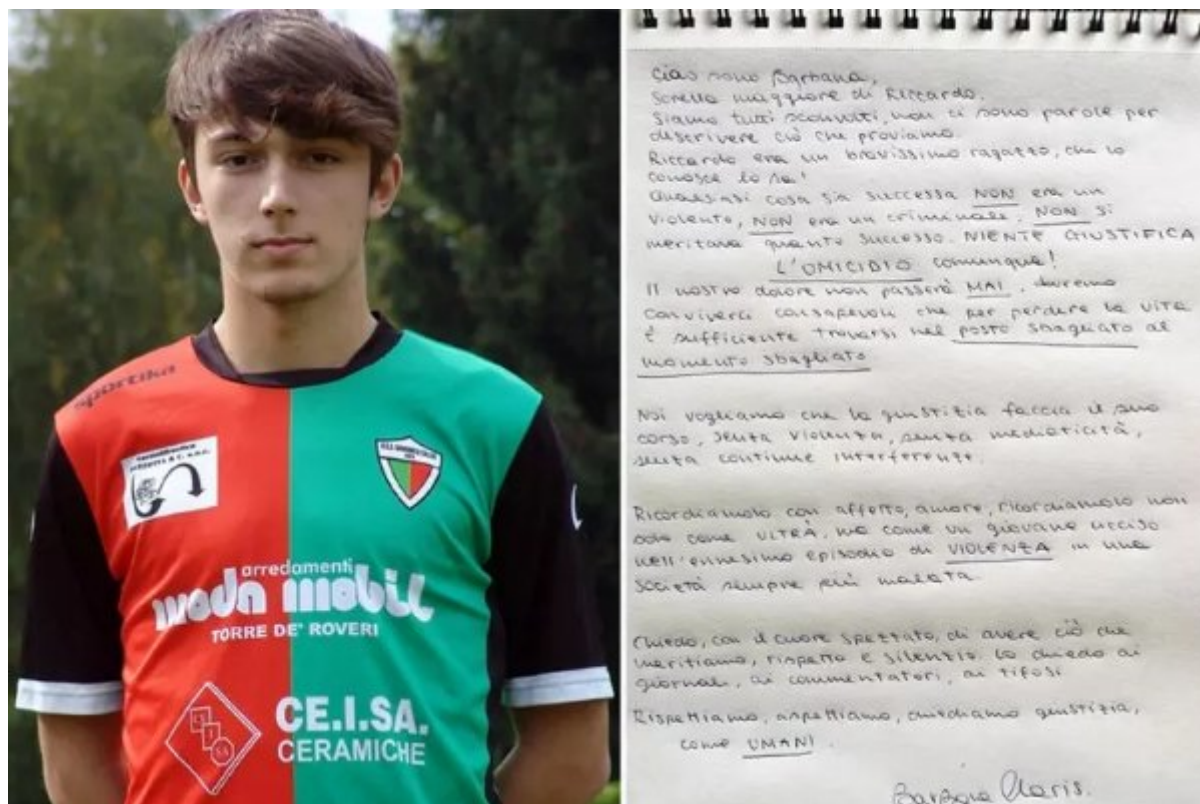 sportika
arredamenti
moda mobil
TORRE DE' ROVERI
CE.I.SA.
CERAMICHE
Ciao sono Barbara,
Sorella maggiore di Riccardo.
Siamo tutti sconvolti, non ci sono parole per
descrivere ciò che proviamo.
Riccardo era un bravissimo ragazzo, chi lo
conosce lo sa!
Qualsiasi cosa sia successa NON era un
violento, NON era un criminale, NON si
meritava quanto successo. NIENTE GIUSTIFICA
L'OMICIDIO comunque!
Il nostro dolore non passerà MAI, dovremo
conviverci consapevoli che per perdere la vita
è sufficiente trovarsi nel posto sbagliato al
momento sbagliato
Noi vogliamo che la giustizia faccia il suo
corso, senza violenza, senza mediaticità,
senza continue interferenze.
Ricordiamolo con affetto, amore, ricordiamolo non
solo come ULTRÀ, ma come un giovane ucciso
nell'ennesimo episodio di VIOLENZA in una
società sempre più malata.
Chiedo, con il cuore spezzato, di avere ciò che
meritiamo, rispetto e silenzio. Lo chiedo ai
giornali, ai commentatori, ai tifosi
Rispettiamo, aspettiamo, chiediamo giustizia,
come UMANI.
Barbara Claris.